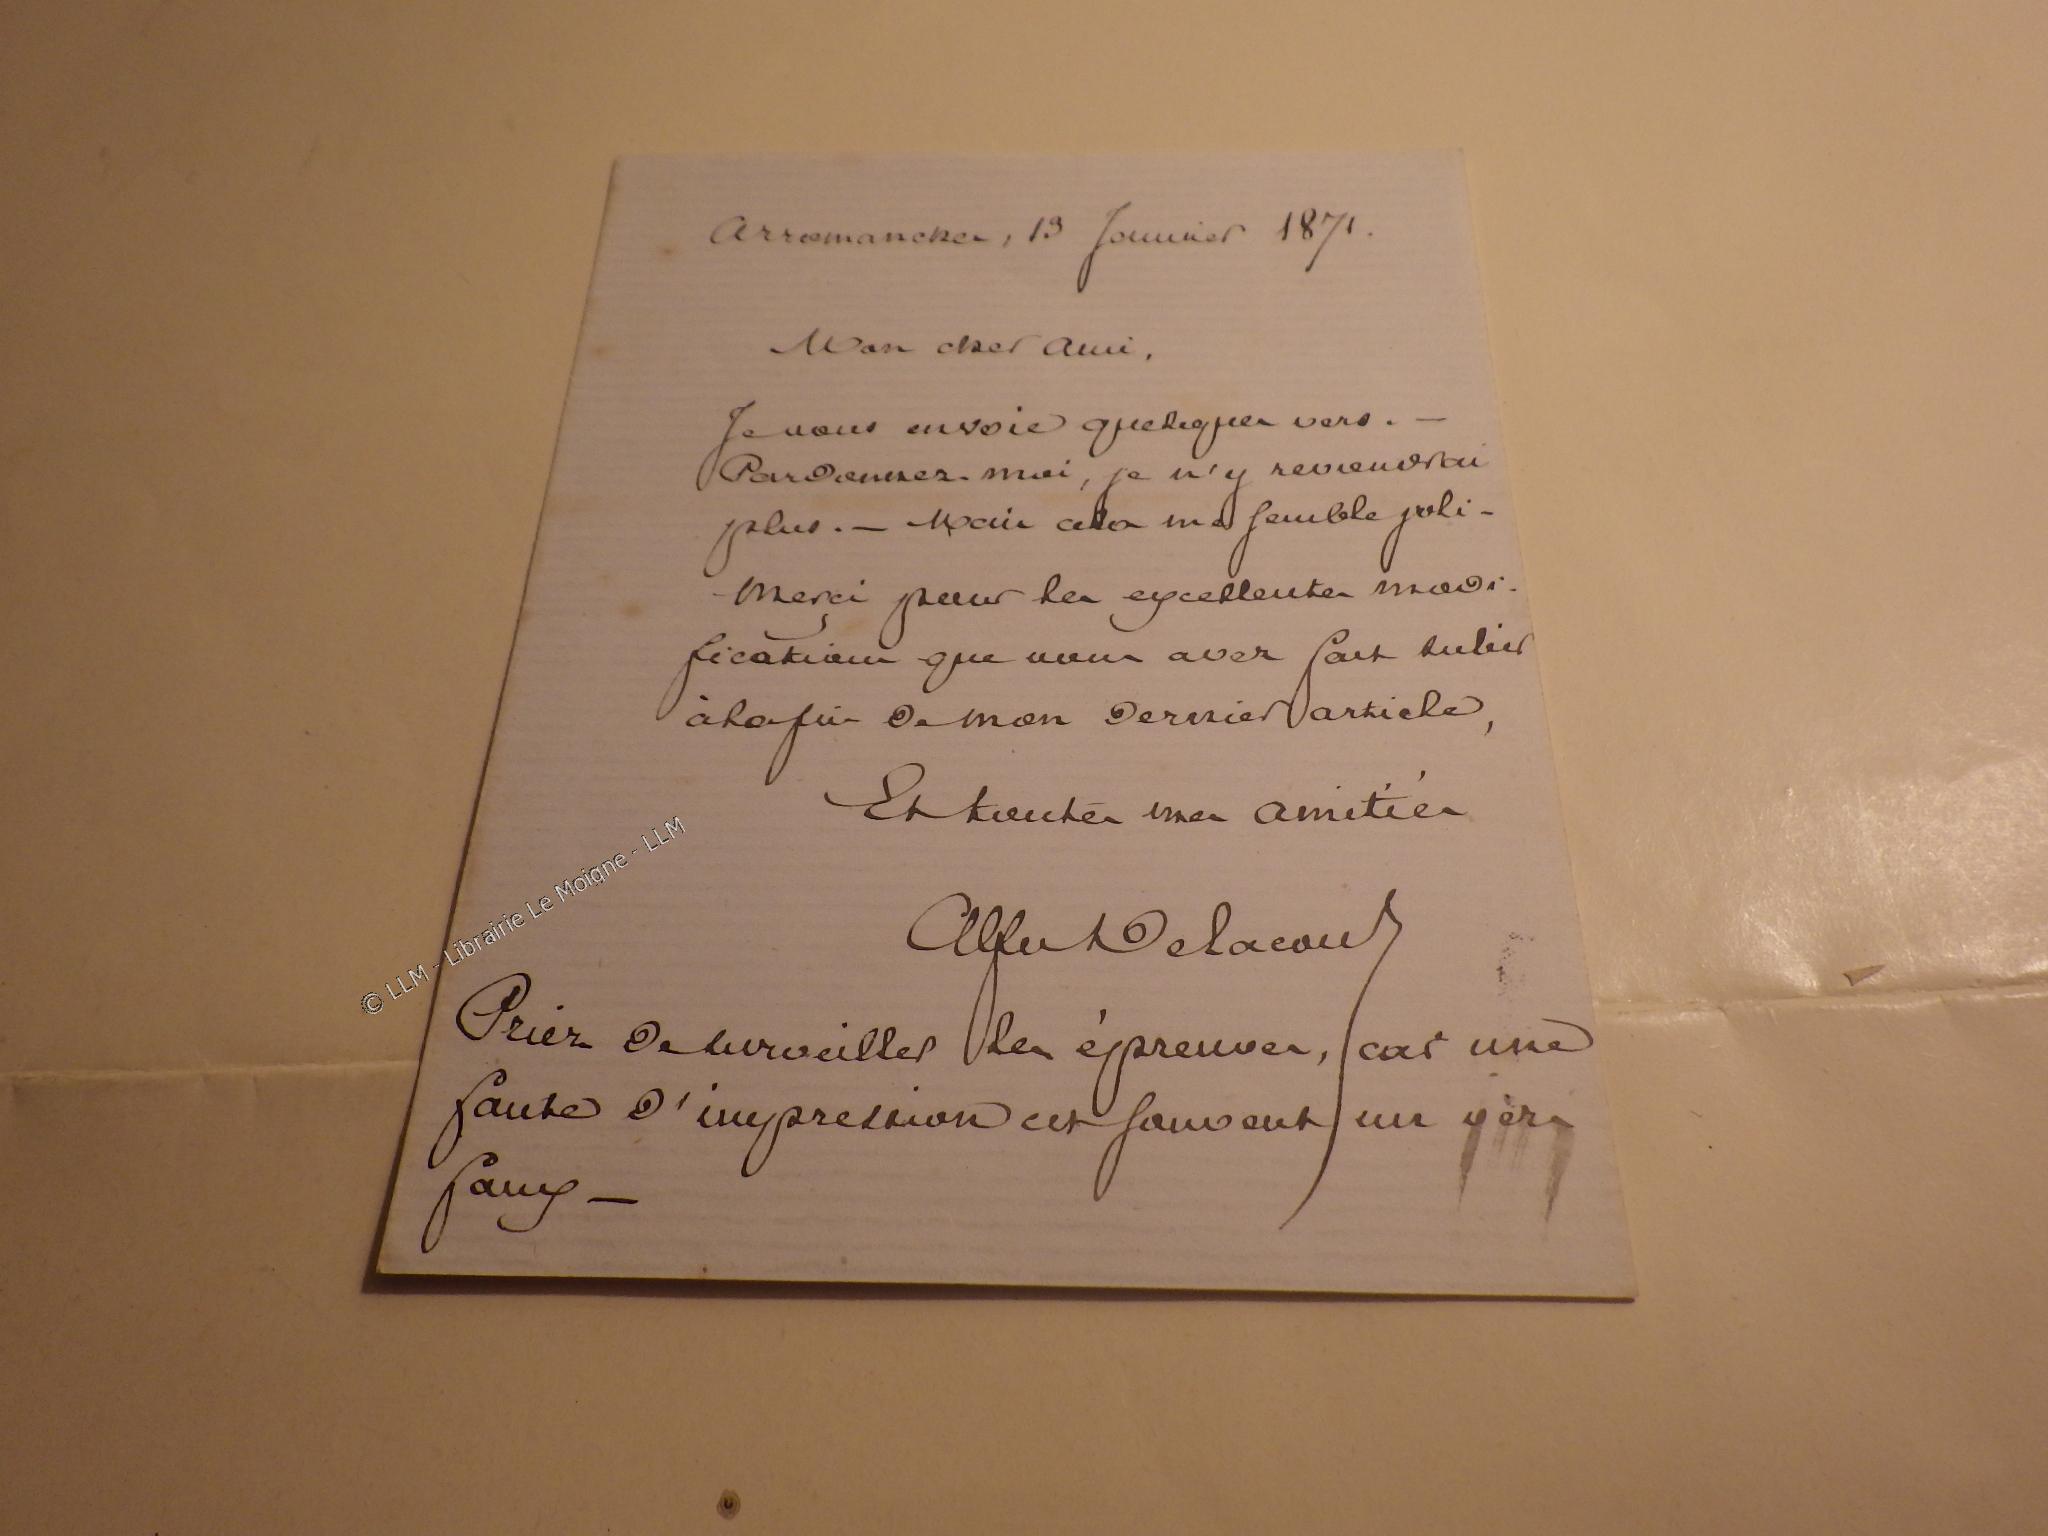 Arromanches, 13 Janvier 1871.
Mon cher ami,
Je vous envoie quelques vers. —
Pardonnez-moi, je n'y reviendrai
plus. — Mais cela me semble joli —
Merci pour les excellentes modi-
fications que vous avez fait subir
à la fin de mon dernier article,
Et toutes mes amitiés
Alfred Delacour
Prier de surveiller les épreuves, car une
faute d'impression est souvent un vers
faux —
© LLM - Librairie Le Moigne - LLM